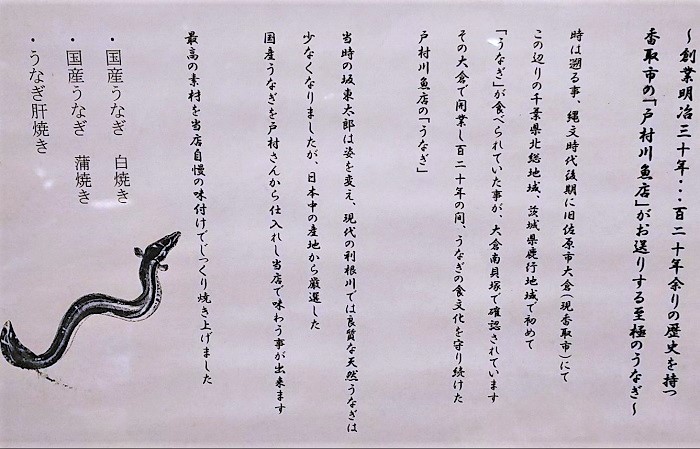 ～創業明治三十年・・・百二十年余りの歴史を持つ
香取市の「戸村川魚店」がお送りする至極のうなぎ～
時は遡る事、縄文時代後期に旧佐原市大倉（現香取市）にて
この辺りの千葉県北総地域、茨城県鹿行地域で初めて
「うなぎ」が食べられていた事が、大倉南貝塚で確認されています
その大倉で開業し百二十年の間、うなぎの食文化を守り続けた
戸村川魚店の「うなぎ」
当時の坂東太郎は姿を変え、現代の利根川では良質な天然うなぎは
少なくなりましたが、日本中の産地から厳選した
国産うなぎを戸村さんから仕入れし当店で味わう事が出来ます
最高の素材を当店自慢の味付けでじっくり焼き上げました
・国産うなぎ 白焼き
・国産うなぎ 蒲焼き
・うなぎ肝焼き